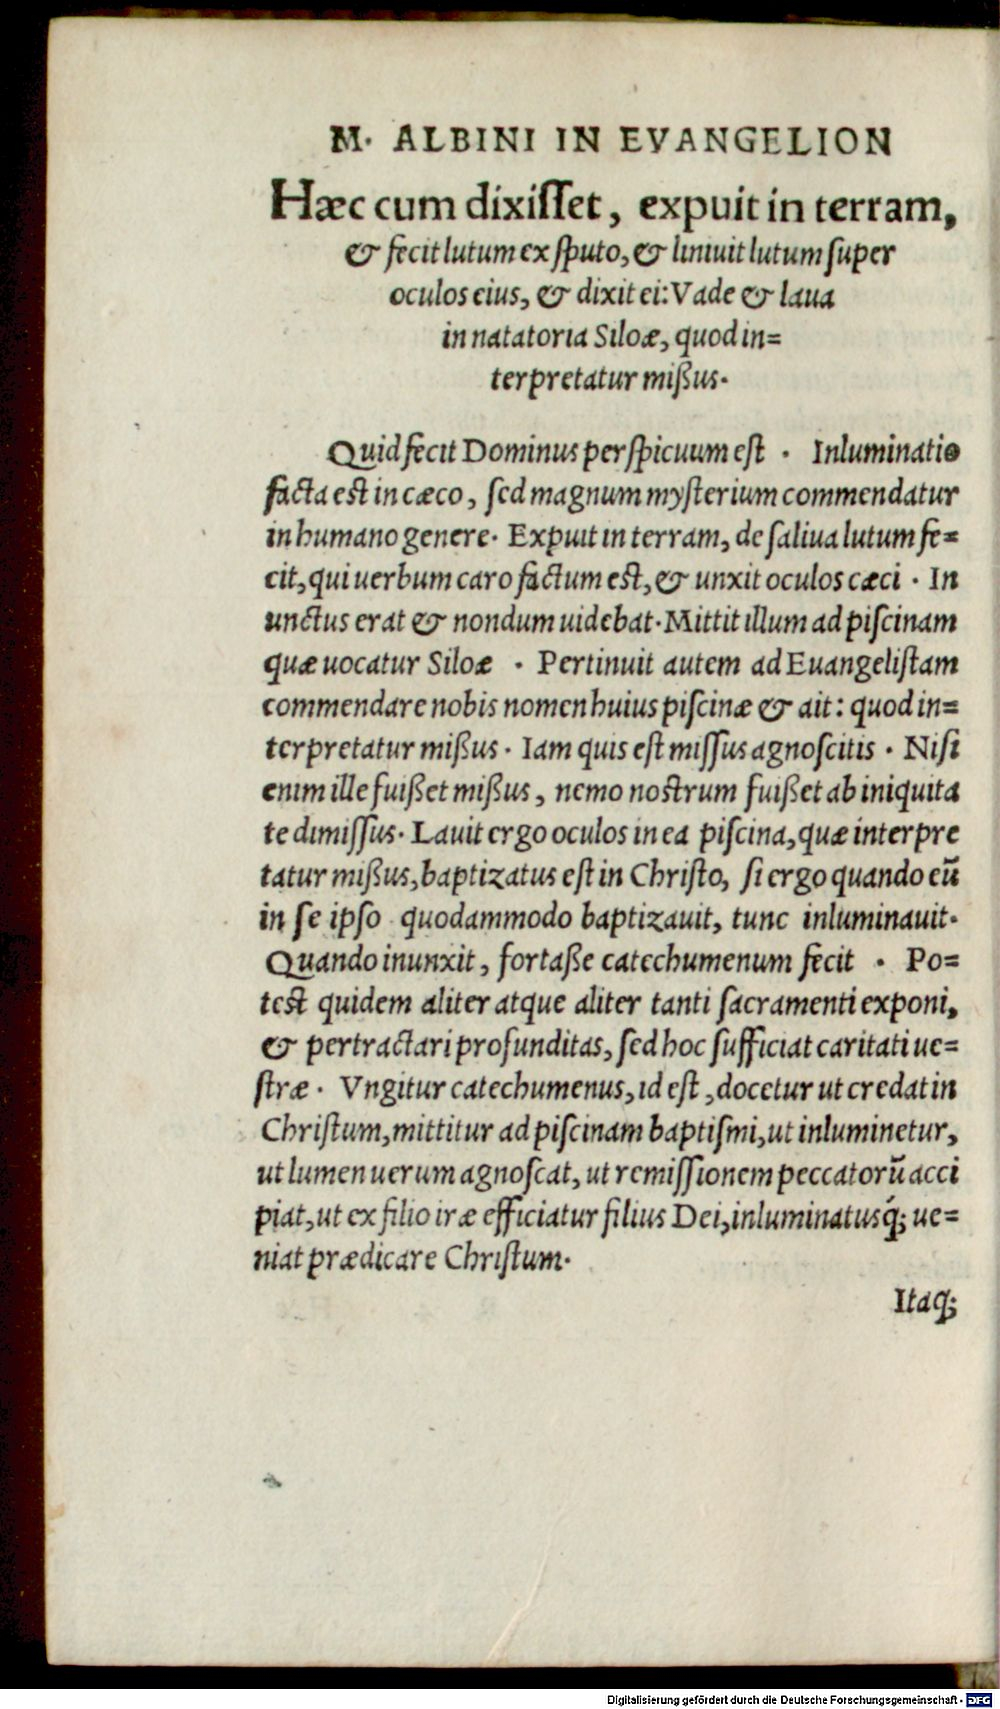 M. ALBINI IN EVANGELION
Hæc cum dixiſſet, expuit in terram,
& fecit lutum ex ſputo, & liniuit lutum ſuper
oculos eius, & dixit ei: Vade & laua
in natatoria Siloæ, quod in=
terpretatur mißus.
Quid fecit Dominus perſpicuum eſt . Inluminatio
facta est in cæco, ſed magnum myſterium commendatur
in humano genere. Expuit in terram, de ſaliua lutum fe=
cit, qui uerbum caro factum est, & unxit oculos cæci . In
unctus erat & nondum uidebat. Mittit illum ad piſcinam
quæ uocatur Siloæ . Pertinuit autem ad Euangeliſtam
commendare nobis nomen huius piſcinæ & ait: quod in=
terpretatur mißus . Iam quis est miſſus agnoſcitis . Niſi
enim ille fuißet mißus, nemo nostrum fuißet ab iniquita
te dimiſſus. Lauit ergo oculos in ea piſcina, quæ interpre
tatur mißus, baptizatus est in Chriſto, ſi ergo quando eũ
in ſe ipſo quodammodo baptizauit, tunc inluminauit.
Quando inunxit, fortaße catechumenum fecit . Po=
test quidem aliter atque aliter tanti ſacramenti exponi,
& pertractari profunditas, ſed hoc ſufficiat caritati ue=
ſtræ . Vngitur catechumenus, id eſt, docetur ut credat in
Chriſtum, mittitur ad piſcinam baptiſmi, ut inluminetur,
ut lumen uerum agnoſcat, ut remiſſionem peccatorũ acci
piat, ut ex filio iræ efficiatur filius Dei, inluminatusq́; ue=
niat prædicare Chriſtum.
Itaq;
Digitalisierung gefördert durch die Deutsche Forschungsgemeinschaft - DFG